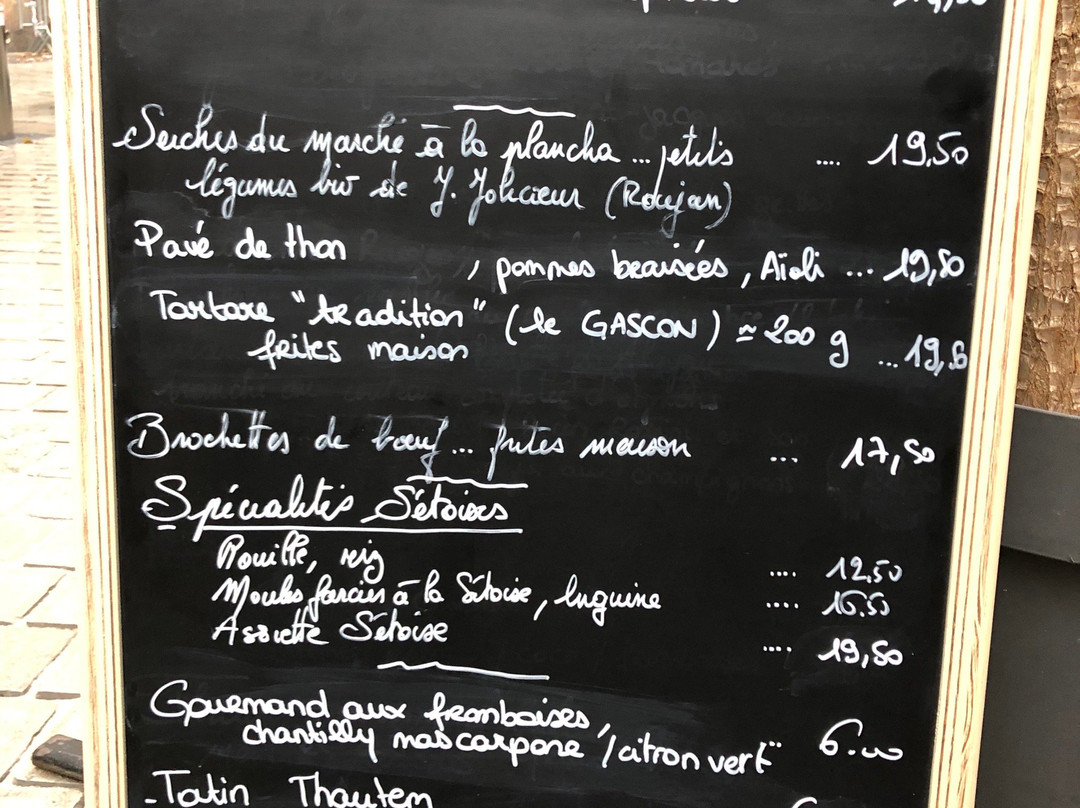 Seiches du marché à la plancha ... petits .... 19,50
légumes bio de J. Jolicoeur (Roujan)
Pavé de thon , pommes braisées, Aïoli ... 19,50
Tartare "tradition" (le GASCON) ≃ 200 g ... 19,5
frites maison
Brochettes de boeuf ... frites maison ... 17,50
Spécialités Sétoises
Rouille, riz .... 12,50
Moules farcies à la Sétoise, linguine .... 16,50
Assiette Sétoise .... 19,50
Gourmand aux framboises,
chantilly mascarpone / citron vert" 6.00
- Tatin Thautem